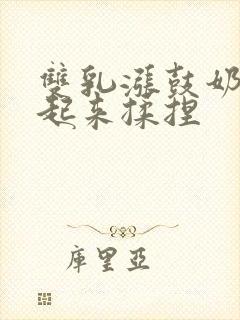 雙乳漲鼓奶
起来揉捏
庫里亞